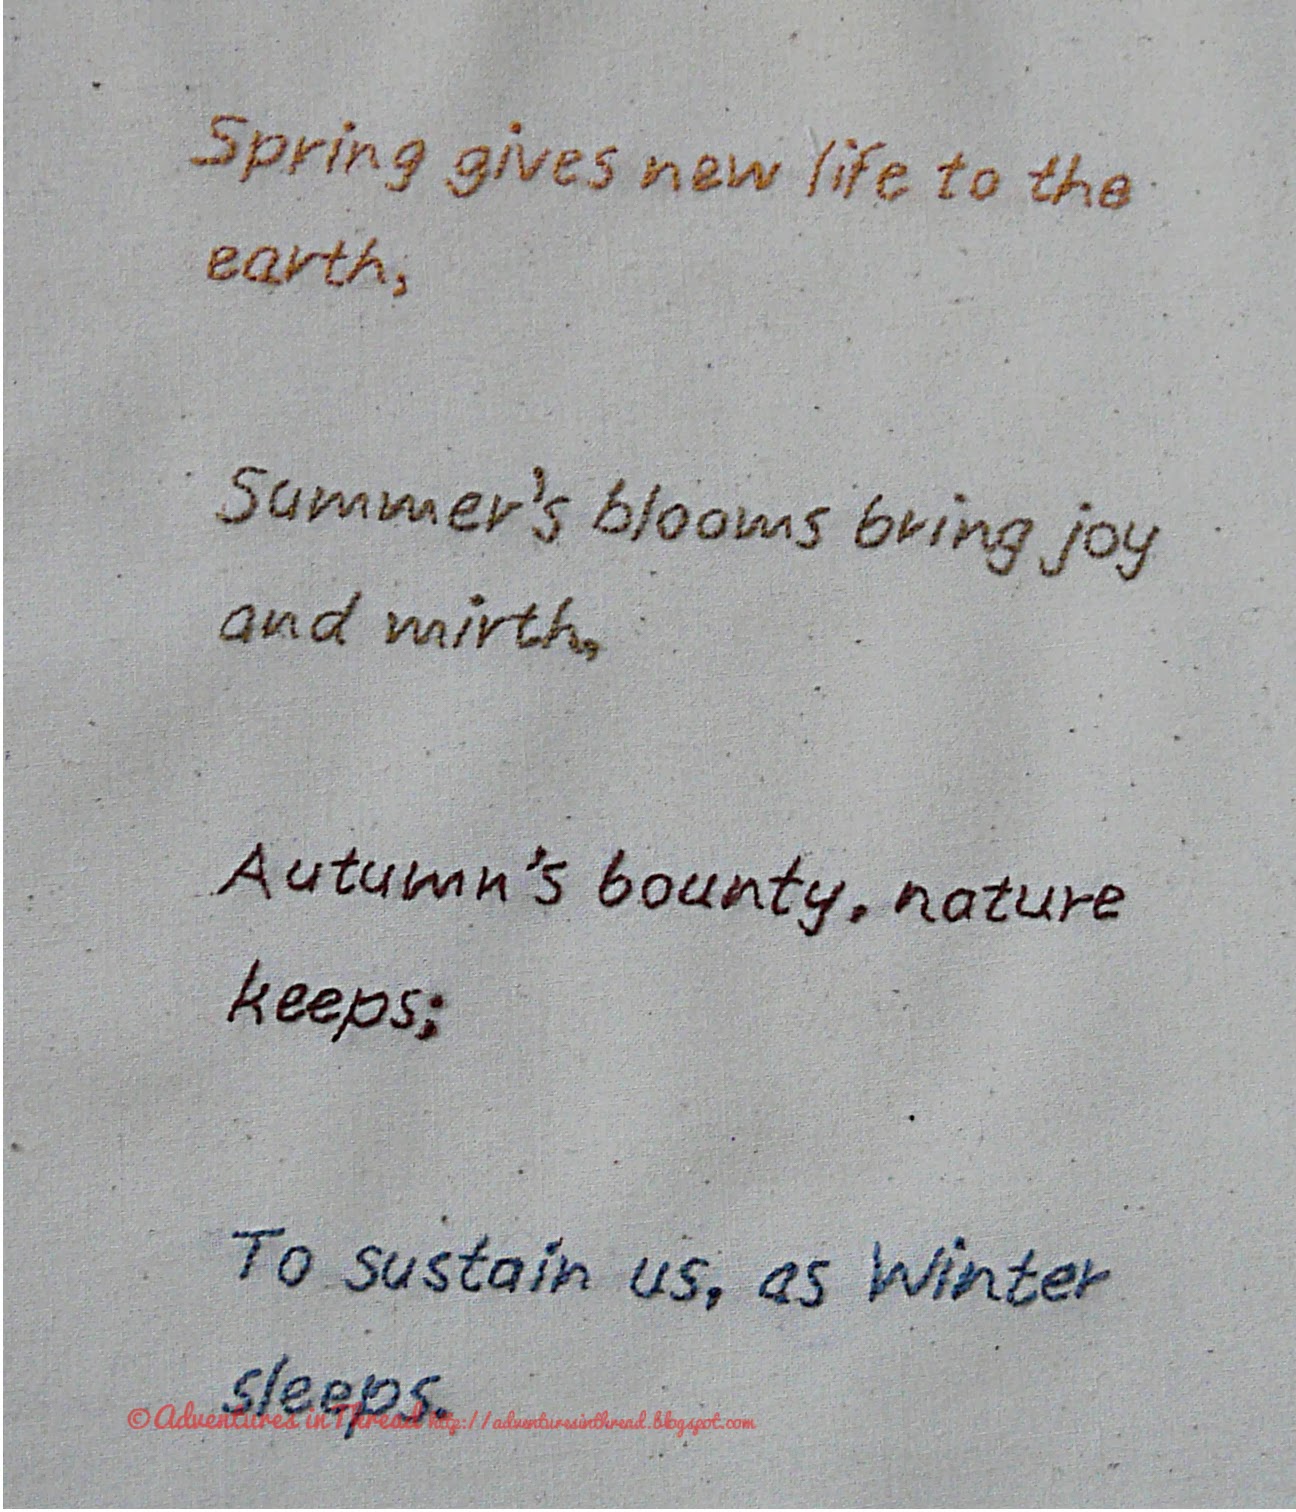 Spring gives new life to the
earth,
Summer's blooms bring joy
and mirth,
Autumn's bounty, nature
keeps;
To sustain us, as Winter
sleeps.
© Adventures in Thread http://adventuresinthread.blogspot.com